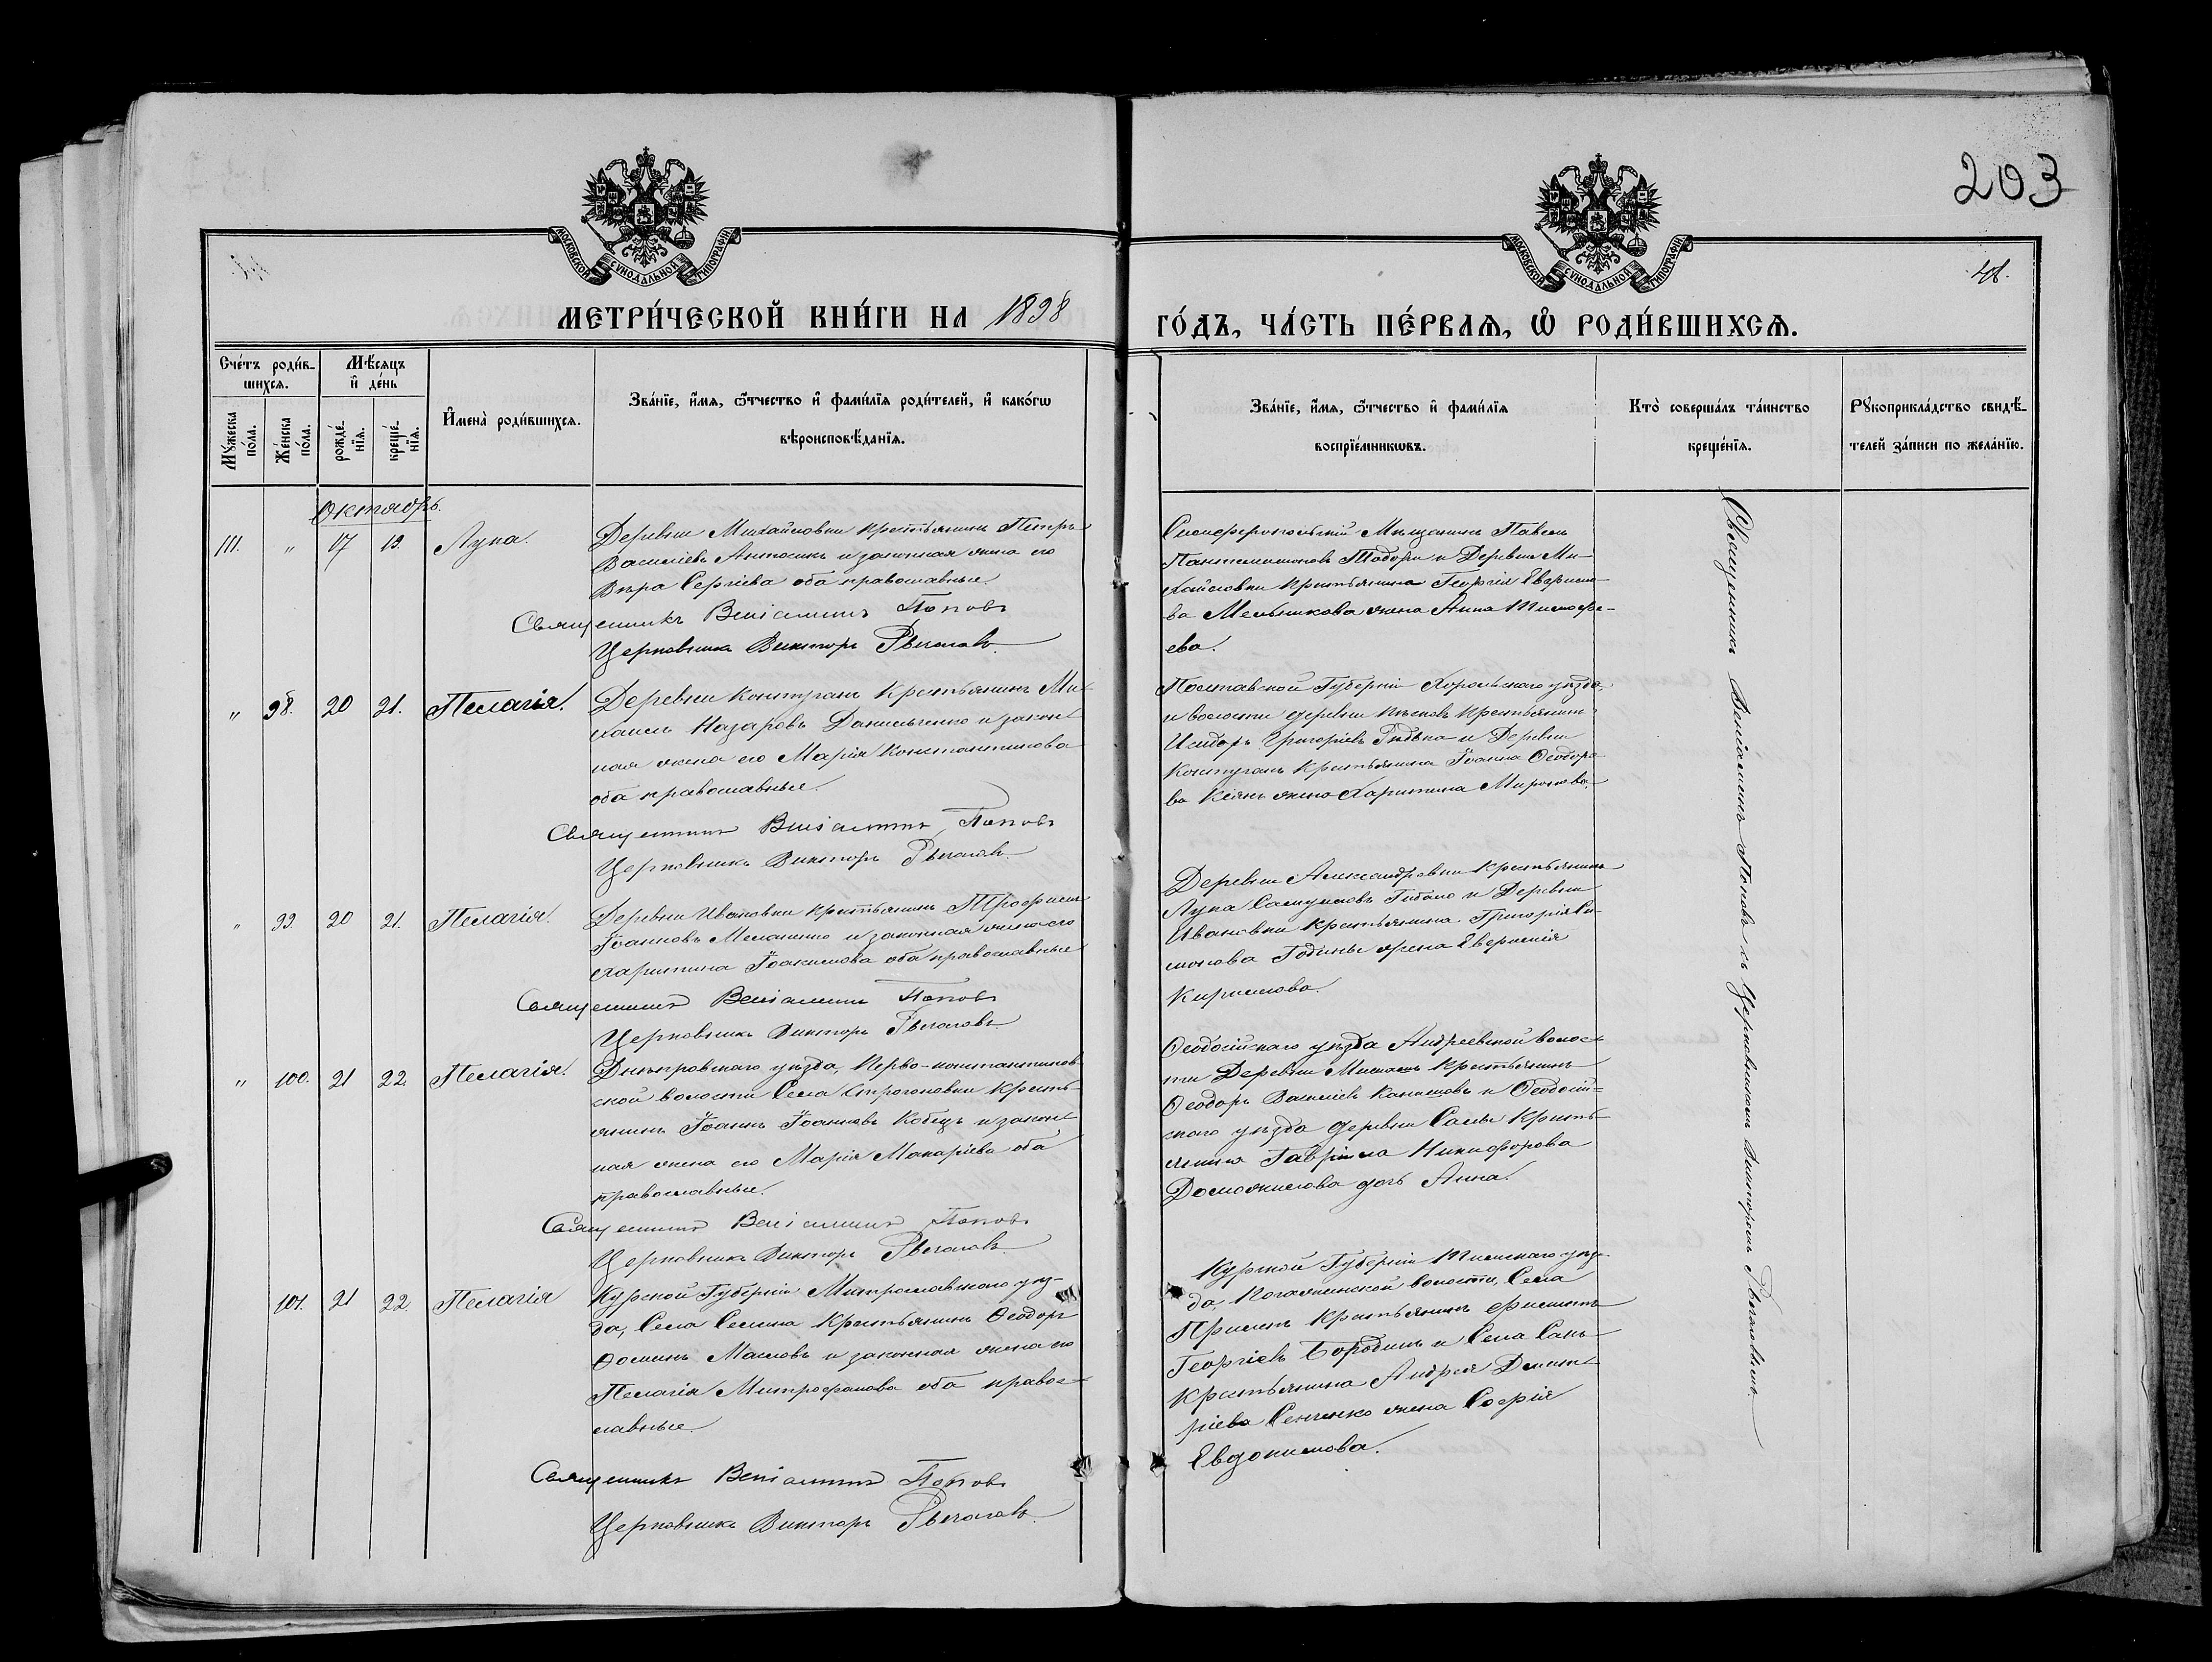 203
МОСКОВСКОЙ СУНОДАЛЬНОЙ ТИПОГРАФІИ
МОСКОВСКОЙ СУНОДАЛЬНОЙ ТИПОГРАФІИ
МЕТРИ́ЧЕСКОЙ КНИ́ГИ НА 1898
ГО́ДЪ, ЧА́СТЬ ПЕ́РВАѦ, Ѽ РОДИ́ВШИХСѦ.
Сче́тъ роди́в-
шихсѧ.
Мѣ́сѧцъ
и҆ де́нь
Мꙋ́жеска
по́ла.
Же́нска
по́ла.
рожде́-
нїѧ.
креще́-
нїѧ.
И҆мена̀ роди́вшихсѧ.
Зва́нїе, и҆́мѧ, ѻ҆́тчество и҆ фами́лїѧ роди́телей, и҆ како́гѡ
вѣроисповѣ́данїѧ.
Зва́нїе, и҆́мѧ, ѻ҆́тчество и҆ фами́лїѧ
воспрїе́мникѡвъ.
Кто̀ соверша́лъ та́инство
креще́нїѧ.
Рꙋкоприкла́дство свидѣ́-
телей за́писи по жела́нїю.
Октябрь.
111. " 17 19. Лука.
Деревни Михайловки крестьянинъ Петръ
Василіевъ Антошкъ и законная жена его
Вѣра Сергіева оба православные.
Священникъ Веніаминъ Поповъ
Церковникъ Викторъ
Симферопольскій Мѣщанинъ Павелъ
Пантелимоновъ Тодори и Деревни Ми-
хайловки крестьянина Георгія
ва Мельникова жена Анна Тимофе-
ева.
" 98. 20 21. Пелагія.
Деревни Контуганъ Крестьянинъ Ми-
хаилъ Назаровъ Данильченко и закон-
ная жена его Марія Константинова
оба православные.
Священникъ Веніаминъ Поповъ
Церковникъ Викторъ
Полтавской Губерніи Хорольскаго уѣзда,
и волости деревни крестьянинъ
Исидоръ Григоріевъ и Деревни
Контуганъ крестьянина Іоанна Ѳеодоро-
ва жена Харитина Миронова.
" 99. 20 21. Пелагія.
Деревни Ивановки крестьянинъ Трофимъ
Іоанновъ Меланенко и законная жена его
Харитина Іоакимова оба православные
Священникъ Веніаминъ Поповъ
Церковникъ Викторъ
Деревни Александровки крестьянинъ
Лука Самуиловъ и Деревни
Ивановки крестьянина Григорія Си-
монова Годины жена Евфимія
Кириллова.
" 100. 21 22. Пелагія.
Днѣпровскаго уѣзда, Перво-константинов-
ской волости Села Строгоновки кресть-
янинъ Іоаннъ Іоанновъ Кобецъ и закон-
ная жена его Марія Макаріева оба
православные.
Священникъ Веніаминъ Поповъ
Церковникъ Викторъ
Ѳеодосійскаго уѣзда Андреевской волос-
ти Деревни крестьянинъ
Ѳеодоръ Василіевъ и Ѳеодосій-
скаго уѣзда деревни Салы кресть-
янина Гавріила Никифорова
Доможилова дочь Анна.
101. 21 22. Пелагія
Курской Губерніи уѣз-
да, Села Крестьянинъ Ѳеодоръ
Ѳоминъ Масловъ и законная жена его
Пелагія Митрофанова оба правос-
лавные.
Священникъ Веніаминъ Поповъ
Церковникъ Викторъ
Курской Губерніи Тимскаго уѣз-
да, волости, Села
крестьянинъ Филиппъ
Георгіевъ Бородинъ и Села
крестьянина Андрея Димит-
ріева Сенченко жена Софія
Евдокимова.
Священникъ Веніаминъ Поповъ съ Церковникомъ Викторомъ